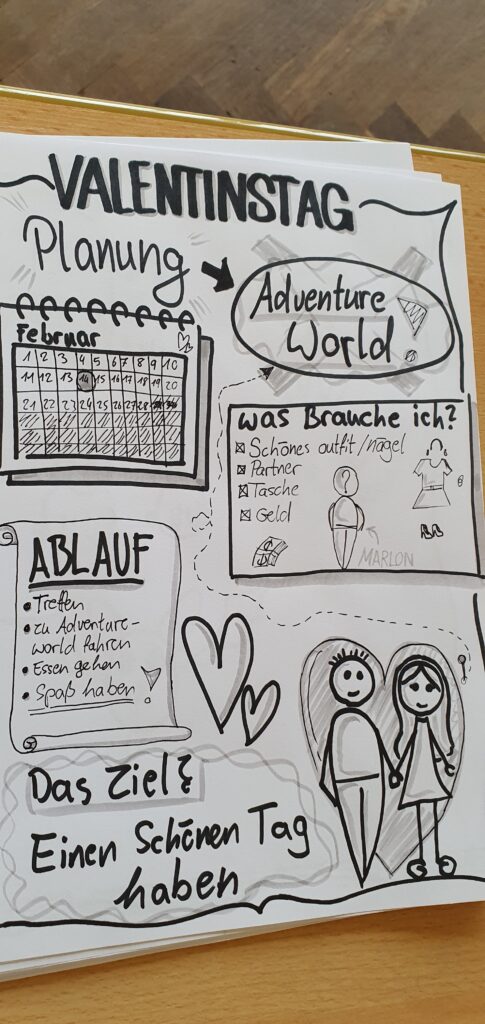 VALENTINSTAG
Planung
Adventure
World
Februar
1 2 3 4 5 6 7 8 9 10
11 12 13 14 15 16 17 18 19 20
21 22 23 24 25 26 27 28
was Brauche ich?
Schönes outfit/nägel
Partner
Tasche
Geld
?
MARLON
ABLAUF
• Treffen
• zu Adventure-
world fahren
• Essen gehen
• Spaß haben !
Das Ziel?
Einen Schönen Tag
haben